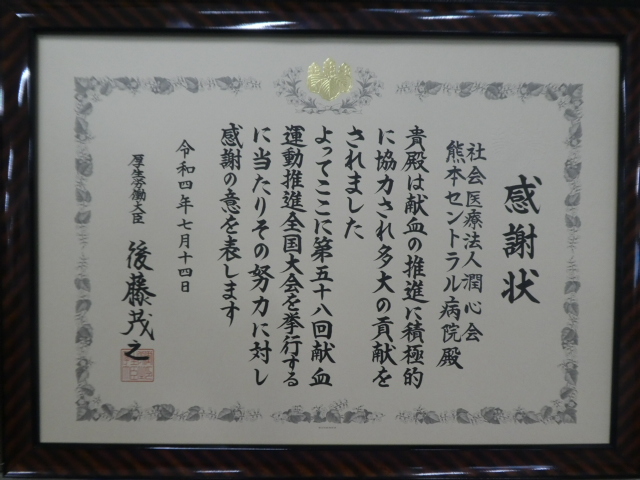 感謝状
社会医療法人潤心会
熊本セントラル病院殿
貴殿は献血の推進に積極的
に協力され多大の貢献を
されました
よってここに第五十八回献血
運動推進全国大会を挙行する
に当たりその努力に対し
感謝の意を表します
令和四年七月十四日
厚生労働大臣
後藤茂之